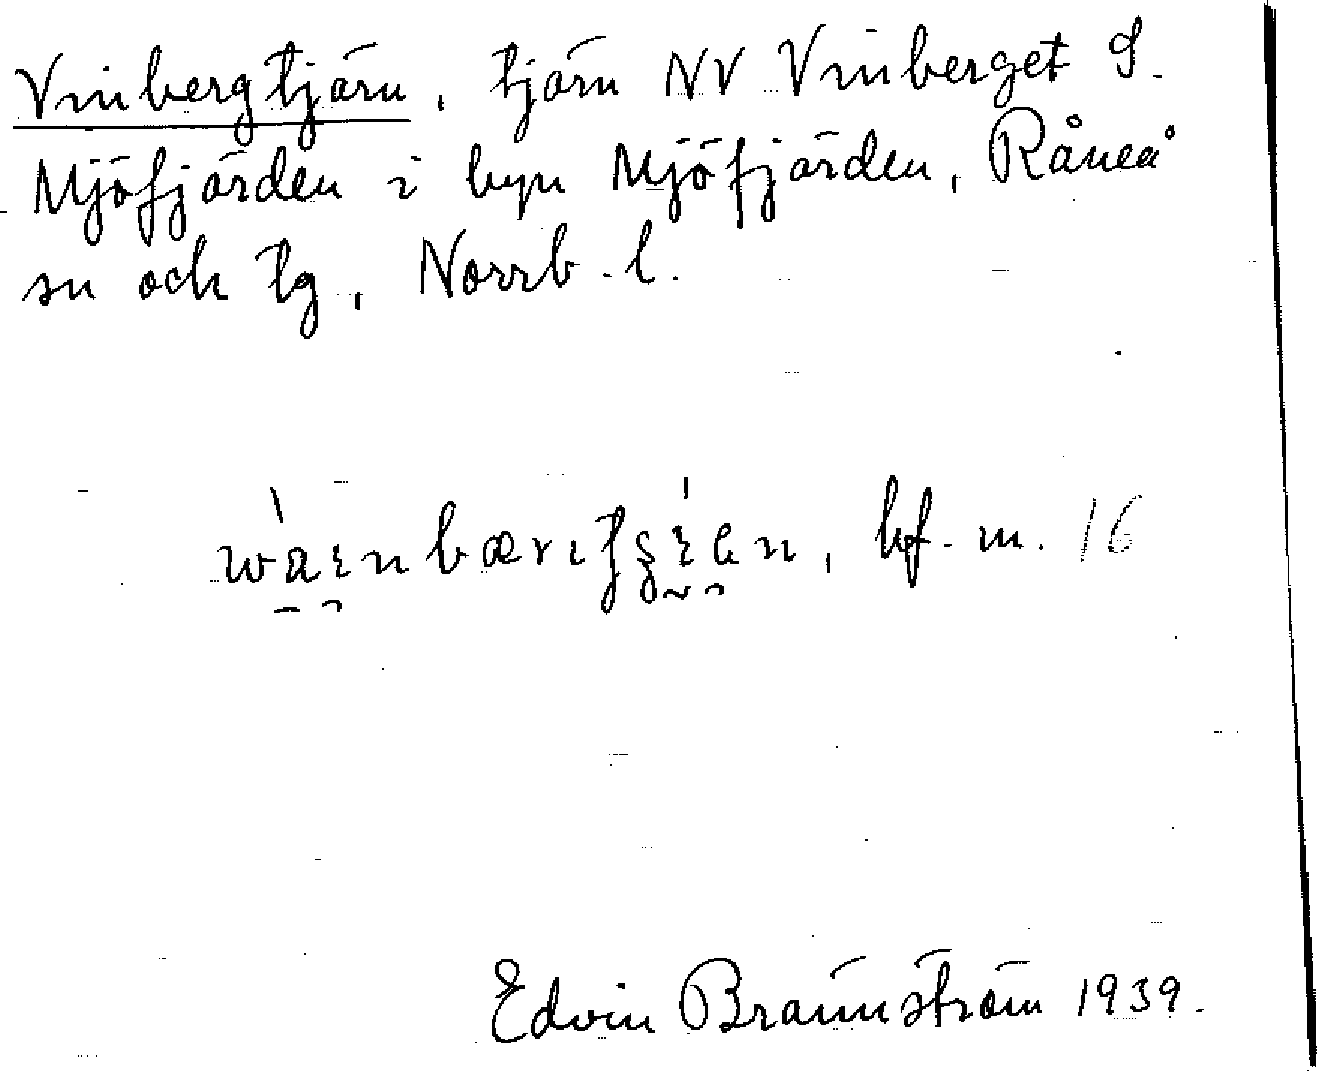 Vinbergtjärn, tjärn NV Vinberget S.
Mjöfjärden i byn Mjöfjärden, Råneå
sn och tg, Norrb. l.
bf. m. 16
Edvin Brännström 1939.